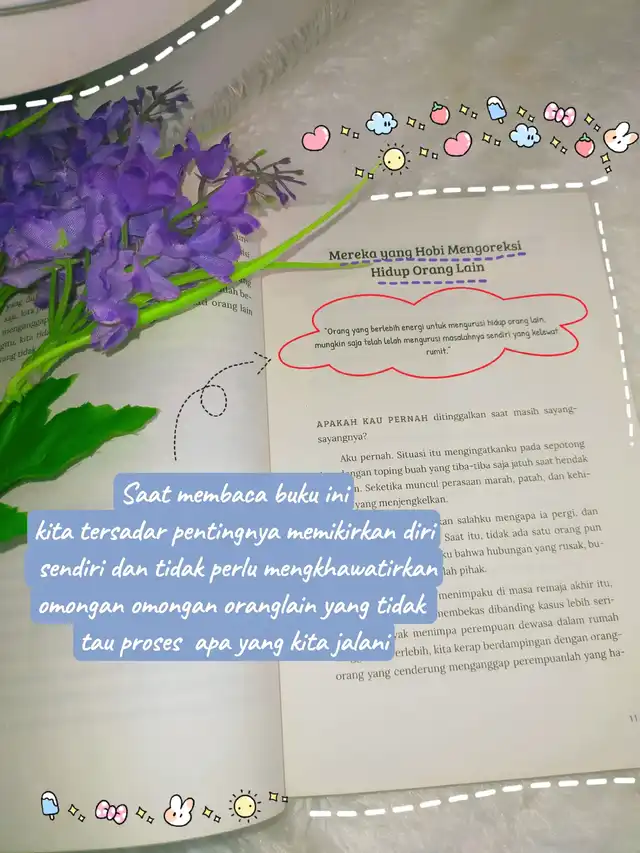 Mereka yang Hobi Mengoreksi
Hidup Orang Lain
"Orang yang berlebih energi untuk mengurusi hidup orang lain,
mungkin saja telah lelah mengurusi masalahnya sendiri yang kelewat
rumit."
APAKAH KAU PERNAH ditinggalkan saat masih sayang-
sayangnya?
Aku pernah. Situasi itu mengingatkanku pada sepotong
dengan toping buah yang tiba-tiba saja jatuh saat hendak
Seketika muncul perasaan marah, patah, dan kehi-
yang menjengkelkan.
salahku mengapa ia pergi, dan
Saat itu, tidak ada satu orang pun
bahwa hubungan yang rusak, bu-
pihak.
menimpaku di masa remaja akhir itu,
membekas dibanding kasus lebih seri-
menimpa perempuan dewasa dalam rumah
kita kerap berdampingan dengan orang-
orang yang cenderung menganggap perempuanlah yang ha-
11
orang lain
Saat membaca buku ini
kita tersadar pentingnya memikirkan diri
sendiri dan tidak perlu mengkhawatirkan
omongan omongan oranglain yang tidak
tau proses apa yang kita jalani